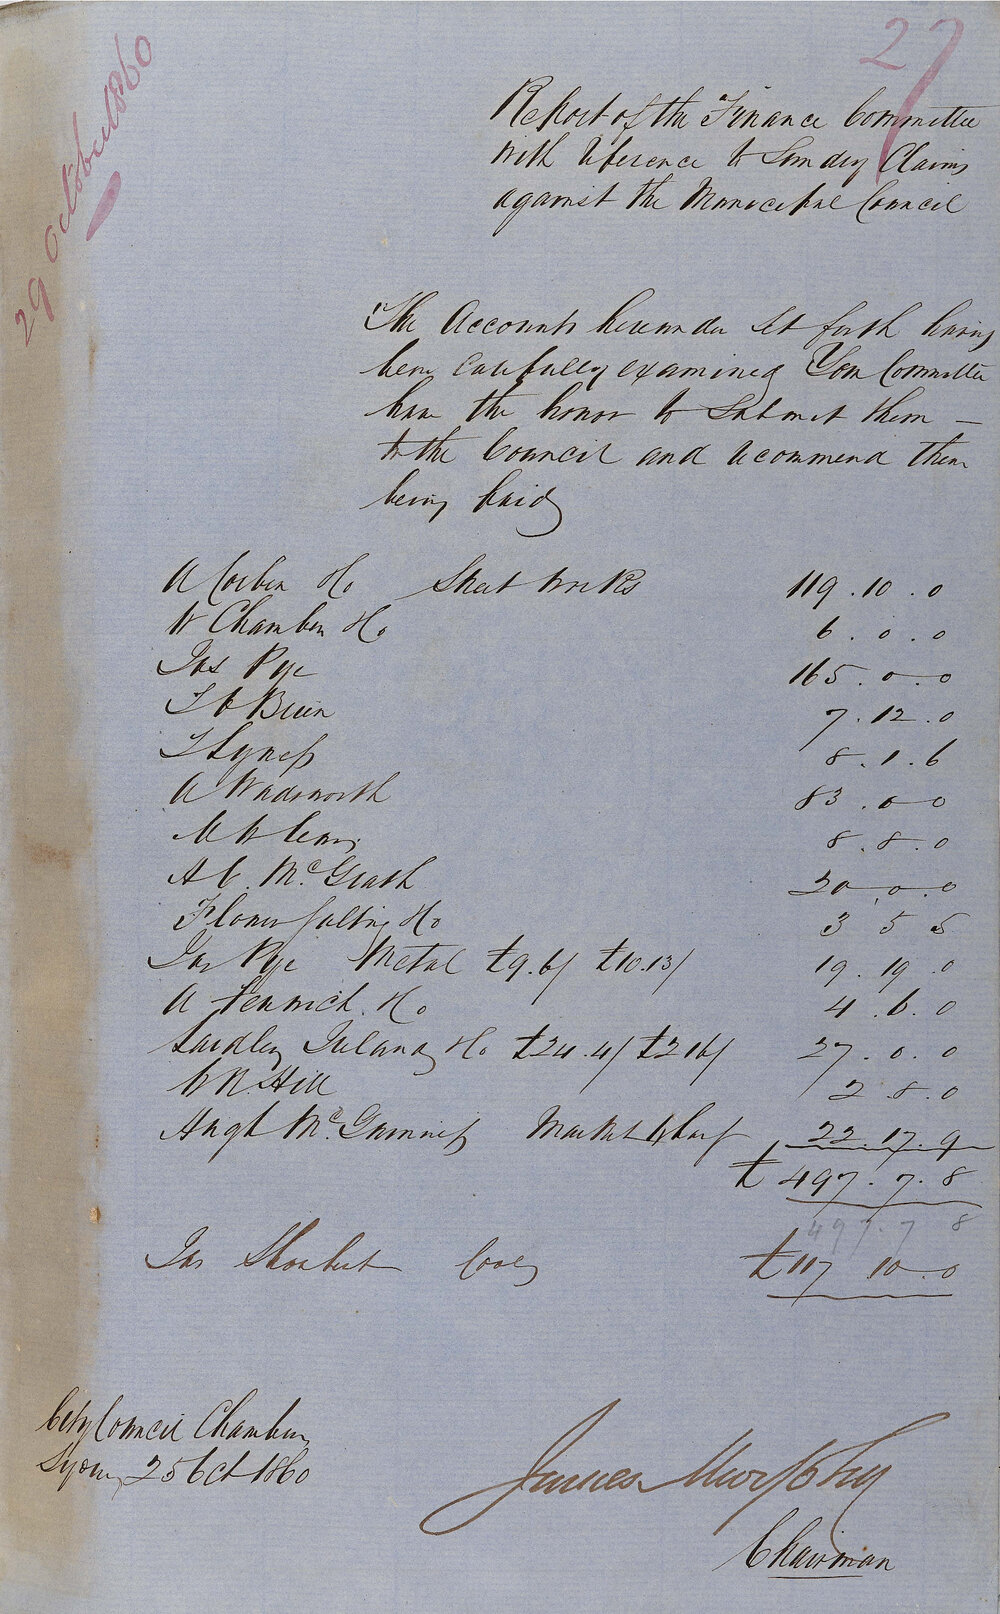 27
29 October 1860
Report of the Finance Committee
with reference to Sundry Claims
against the Municipal Council
The Accounts hereunder set forth having
been carefully examined Your Committee
have the honor to submit them —
to the Council and recommend them
being paid
A Corben &Co Street Works 119 . 10 . 0
W Chamber &Co 6 . 0 . 0
Jas Pye 165 . 0 . 0
7 . 12 . 0
T Lyness 8 . 1 . 6
A Wadsworth 83 . 0 0
M W 8 . 8 . 0
A C. McGrath 20 . 0 . 0
Flower Salting &Co 3 5 5
Jas Pye Metal £9.6/ £10.13/ 19 . 19 . 0
A Fenwick &Co 4 . 6 . 0
Laidley Ireland &Co £24.4/ £2 16/ 27 . 0 . 0
W R. Hill 2 8 . 0
Hugh McGuinness Market Wharf 22 . 17 . 9
£ 497 . 7 . 8
497 . 7 8
Jas Shoobert Coals £117 10 . 0
City Council Chambers
Sydney 25 Oct 1860
James Murphy
Chairman